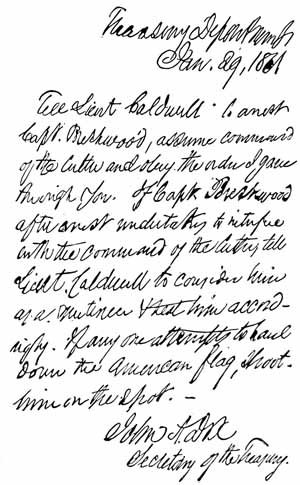 Treasury Department
Jan. 29, 1861
Tell Lieut Caldwell to arrest
Capt. Breshwood, assume command
of the cutter and obey the order I gave
through you. If Capt Breshwood
after arrest undertakes to interfere
with the command of the cutter tell
Lieut. Caldwell to consider him
as a mutineer & treat him accord-
ingly. If any one attempts to haul
down the American flag, shoot
him on the spot. —
John A. Dix
Secretary of the Treasury.